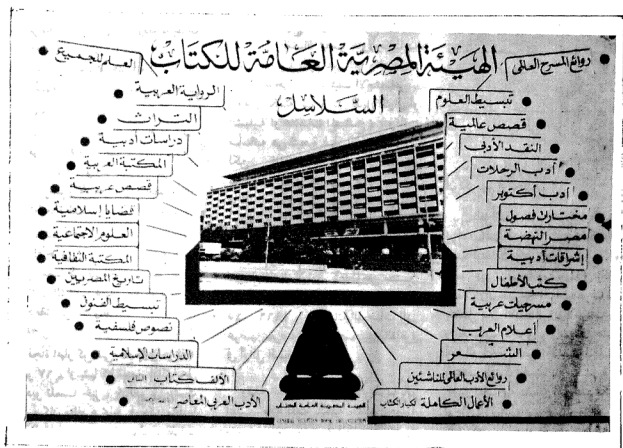 الهيئة المصرية العامة للكتاب
السلاسل
روائع المسرح العالمى
تبسيط العلوم
قصص عالمية
النقد الأدبى
أدب الرحلات
أدب أكتوبر
مختارات فصول
مصر النهضة
إشراقات أدبية
كتب الأطفال
مسرحيات عربية
أعلام العرب
الشعر
روائع الأدب العالمى للناشئين
الأعمال الكاملة لكبار الكتاب
العلم للجميع
الرواية العربية
التراث
دراسات أدبية
المكتبة العربية
قصص عربية
قضايا إسلامية
العلوم الاجتماعية
المكتبة الثقافية
تاريخ المصريين
تبسيط الفنون
نصوص فلسفية
الدراسات الإسلامية
الألف كتاب الثانى
الأدب العربى المعاصر
الهيئة المصرية العامة للكتاب